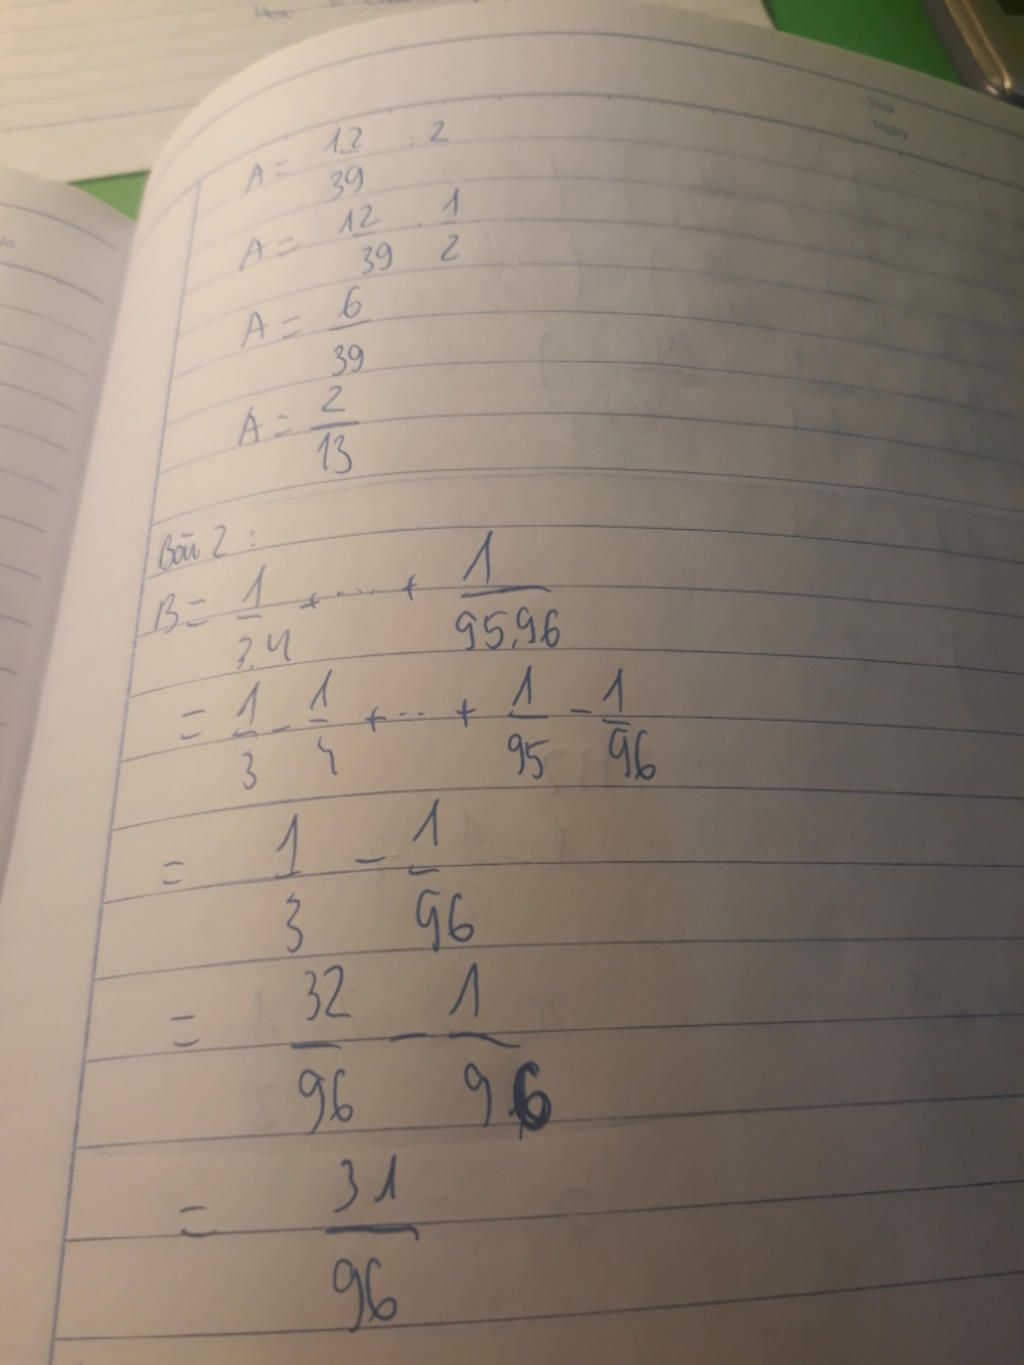 Thứ
Ngày
No.
A = 12/39 : 2
A = 12/39 . 1/2
A = 6/39
A = 2/13
Bài 2 :
B = 1/3.4 + ... + 1/95.96
= 1/3 - 1/4 + ... + 1/95 - 1/96
= 1/3 - 1/96
= 32/96 - 1/96
= 31/96